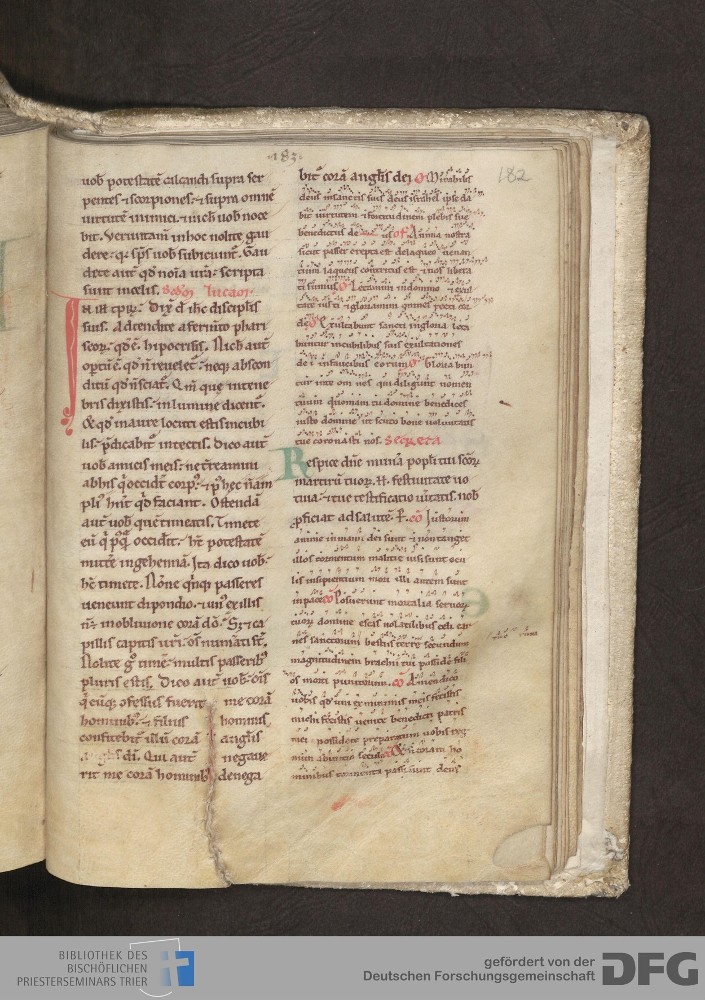 ·183·
182
uob̄ potestatē calcandi supra ser
pentes ⁊ scorpiones· ⁊ supra omnē
uirtutē inimici· ⁊ nich̄ uob̄ noce
bit. Verūtam̄ in hoc nolite gau
dere· q̢ sp̄s uob̄ subiciunt̄. Gau
dete aut̄ qd̄ noīa ur̄a· scripta
sunt in celis. Sc̄dm̄ lucam·
In ill̄ tp̄r̄· Dix̄ d̄ ih̄c discipl̄is
suis. Adtendite a fermto phari
seor̄· qd̄ ē hipocrisis. Nich̄ aut̄
optū ē· qd̄ n̄ reuelet̄· neq̢ abscon
ditū qd̄ n̄ sciat̄. Qm̄ quę in tene
bris dixistis· in lumine dicent̄·
& qd̄ in aure locuti estis in cubi
lis· p̄dicabit̄ in tectis. Dico aut̄
uob̄ amicis meis· ne t̄reamini
ab his q̄ occid̄t corp̢· ⁊ p̢ hęc n̄ am
pli̢ hn̄t qd̄ faciant. Ostendā
aut̄ uob̄ quē timeatis. Timete
eū q̄ p̢q̄ occid̄it· h̄t potestatē
mittē in gehennā. Ita dico uob̄·
h̄c timete. Nōne q̄nq̢ passeres
ueneunt dipondio· ⁊ un̢ ex illis
n̄ ē in obliuione corā dō· S; ⁊ ca
pillis capitis ur̄i· om̄s num̄ati st̄.
Nolite g̊ timē· multis passerib̢
pluris estis. Dico aut̄ uob̄· ois
q̄cūq̢ ɔfessus fuerit me corā
hominib̢· ⁊ fili̢ hominis
confitebit̄ illū corā angl̄is
dī. Qui aut̄ negaue
rit me corā hominib̢ denega
bit̄ corā angl̄is dei O Mirabilis
deus in sanctis suis deus israhel ipse da
bit uirtutem ⁊ fortitudinem plebis sue
benedictus de us Of Anima nostra
sicut passer erepta est de laqueo uenan
tium laqueus contritus est ⁊ nos libera
ti sumus Letamini in domino ⁊ exul
tate iusti ⁊ gloriamini omnes recti cor
de Exultabunt sancti in gloria leta
buntur in cubilibus suis exultationes
dei in faucibus eorum Gloriabun
tur in te omnes qui diligunt nomen
tuum quoniam tu domine benedices
iusto domine ut scuto bone uoluntatis
tue coronasti nos. Secreta
Respice dn̄e munīa popl̄i tui sc̄or̄
martirū tuor̄. ill̄. festiuitate uo
tiua· ⁊ tue testificatio uītatis. nob̄
ꝓficiat ad salutē. P. co Iustorum
anime in manu dei sunt ⁊ non tanget
illos tormentum malitie uisi sunt ocu
lis insipientium mori illi autem sunt
in pace co Posuerunt mortalia seruor̄
tuor̄ domine escas uolatilibus celi car
nes sanctorum bestiis terre secundum
magnitudinem brachii tui posside fili
os morti punitorum. co Amen dico
uobis qd̄ uni ex minimis meis fecistis
michi fecistis uenite benedicti patris
mei possidete preparatum uobis reg
num ab initio seculi co Et si coram ho
minibus tormenta passi sunt deus
BIBLIOTHEK DES
BISCHÖFLICHEN
PRIESTERSEMINARS TRIER
gefördert von der
Deutschen Forschungsgemeinschaft
DFG